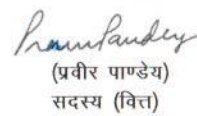 Pravin Pandey
(प्रवीर पाण्डेय)
सदस्य (वित्त)